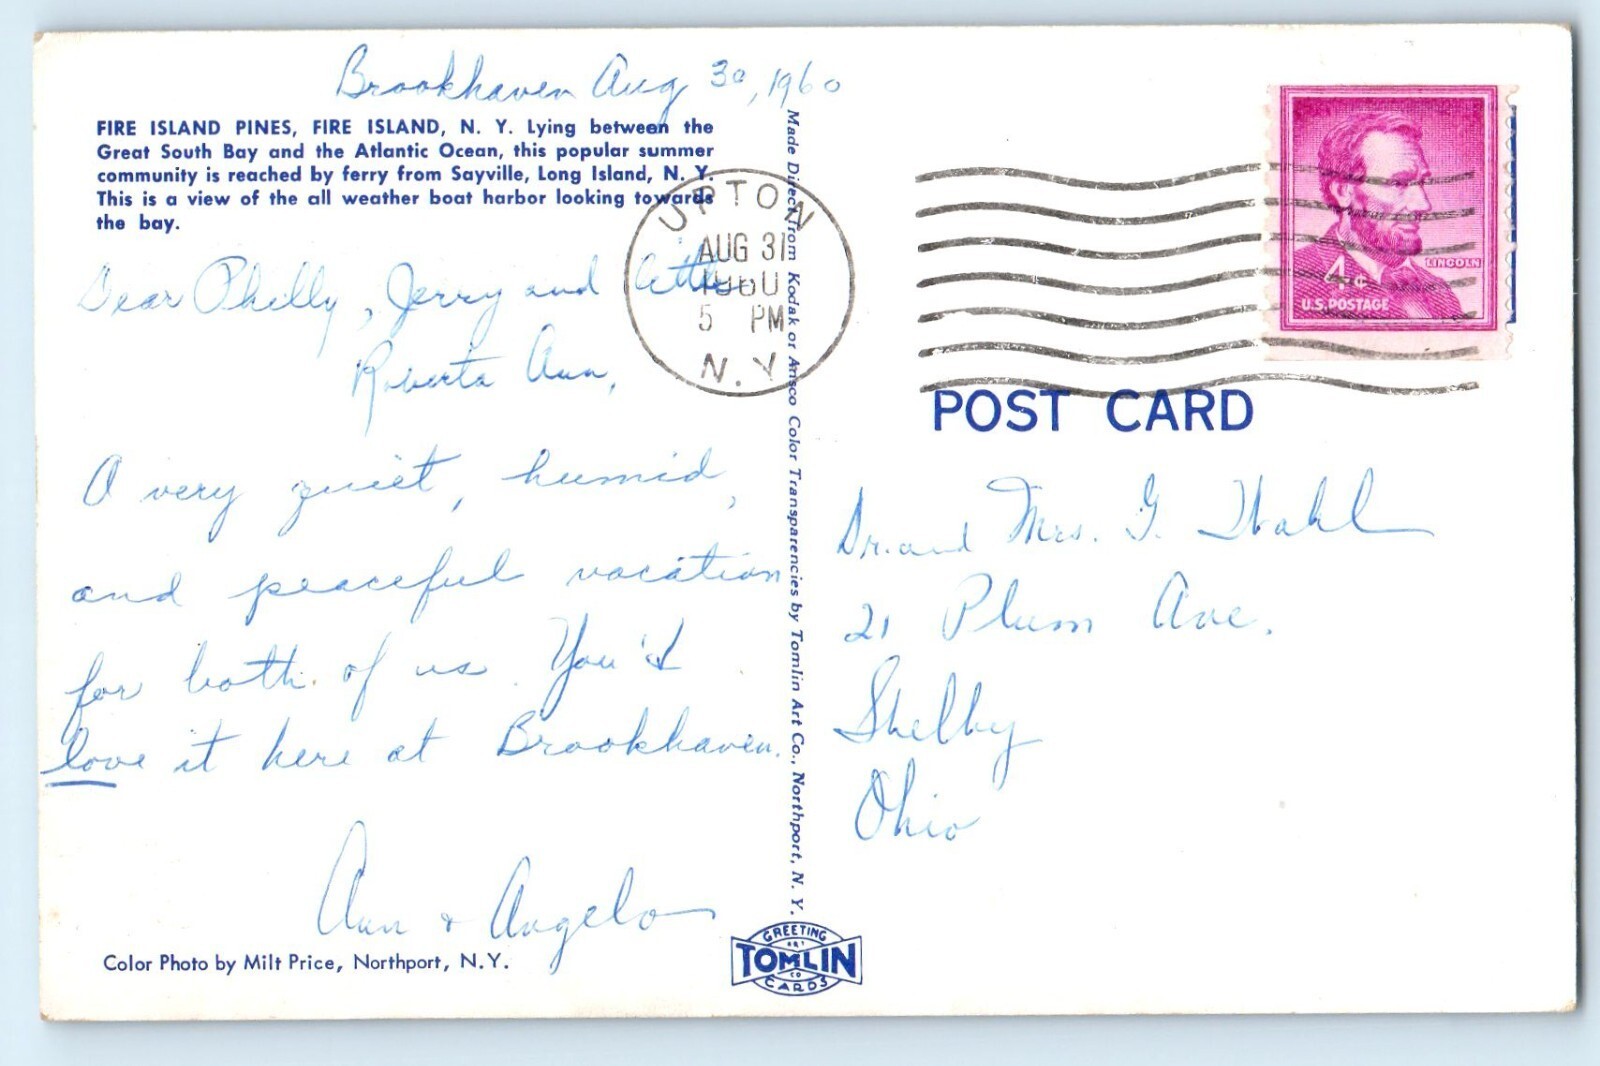 Brookhaven Aug 30, 1960
FIRE ISLAND PINES, FIRE ISLAND, N. Y. Lying between the
Great South Bay and the Atlantic Ocean, this popular summer
community is reached by ferry from Sayville, Long Island, N. Y.
This is a view of the all weather boat harbor looking towards
the bay.
Dear Philly, Jerry and
Roberta Ann,
A very quiet, humid,
and peaceful vacation
for both of us. You'd
love it here at Brookhaven.
Ann & Angelo
Color Photo by Milt Price, Northport, N.Y.
UPTON
AUG 31
1960
5 PM
N.Y.
Made Direct from Kodak or Ansco Color Transparencies by Tomlin Art Co., Northport, N. Y.
GREETING
ART
TOMLIN
CO
CARDS
LINCOLN
4¢
U.S. POSTAGE
POST CARD
Dr. and Mrs. G. Wahl
21 Plum Ave.
Shelby
Ohio